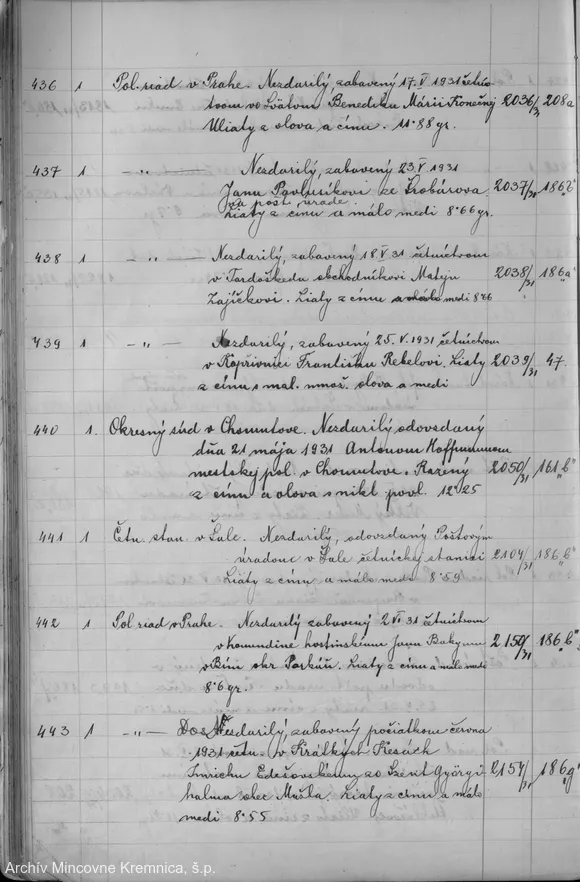 436 1 Pol. riad. v Prahe. Nezdarilý, zabavený 17. V 1931 četníc
tvom vo Svätom Benediku Márii Tronečnej 2036/31 208a
Uliaty z olova a cínu. 11·88 gr.
437 1 -„- Nezdarilý, zabavený 23. V. 1931
Janu Pavlusíkovi ze Šrobárova 2037/31 186„č"
na pošt. úrade.
Liaty z cínu a málo medi 8·66 gr.
438 1 -„- Nezdarilý, zabavený 18. V 31 četníctvom
v Tardoškedu obchodníkovi Mateju 2038/31 186„a"
Zajíčkovi. Liaty z cínu a málo medi 8·76
439 1 -„- Nezdarilý, zabavený 25. V. 1931 četníctvom
v Kopřivnici Frantisku Rebelovi. Liaty 2039/31 47.
z cínu s mal. množ. olova a medi
440 1. Okresný súd v Chomutove. Nezdarilý odovzdaný
dňa 21 mája 1931 Antonom Hoffmannom
mestskej pol. v Chomutove. Razený 2050/31 161„b"
z cínu a olova s nikl. povl. 12·25
441 1 Četn. stan. v Šale. Nezdarilý, odovzdaný Poštovým
úradom v Šale četníckej stanici 2104/31 186„b"
Liaty z cínu a málo medi 8·59
442 1 Pol riad v Prahe. Nezdarilý zabavený 2 VI 31 četníctvom
v Komundíne hostinskému Janu Bakymu 2150/31 186„b"
v Bíni okr Parkáň. Liaty z cínu a málo medi
8·6 gr.
443 1 -„- Nezdarilý, zabavený počiatkom června
1931 četn. v Králkých
Imrichu Edešovskému zo Szent Györgyi 2157/31 186„g"
halma obec Mužla. Liaty z cínu a málo
medi 8·55
Archív Mincovne Kremnica, š.p.